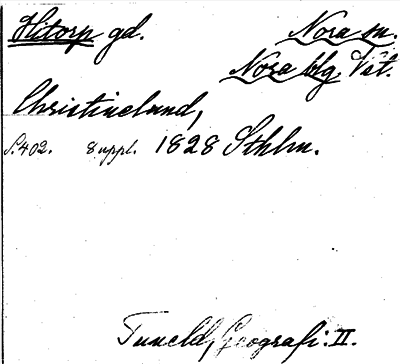 Hitorp gd. Nora sn.
Nora blg. Vstm.
Christinelund,
S. 402. 8 uppl. 1828 Sthlm.
Tuneld, Geografi. II.